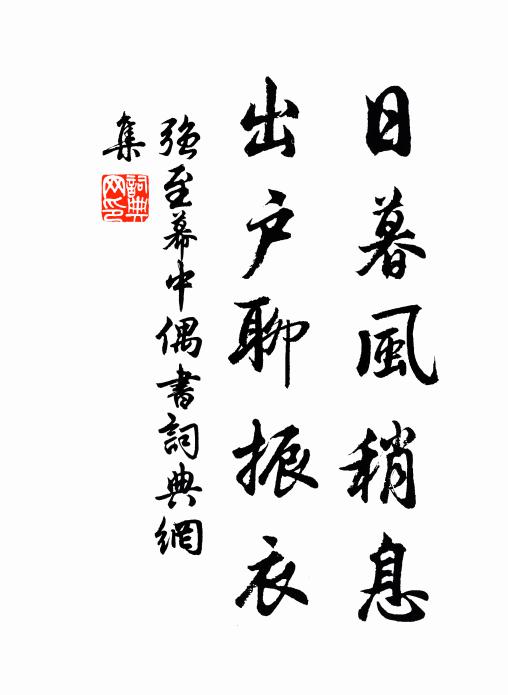 日暮風稍息
出户聊振衣
強至幕中偶書詞典網
集
詞典
网印